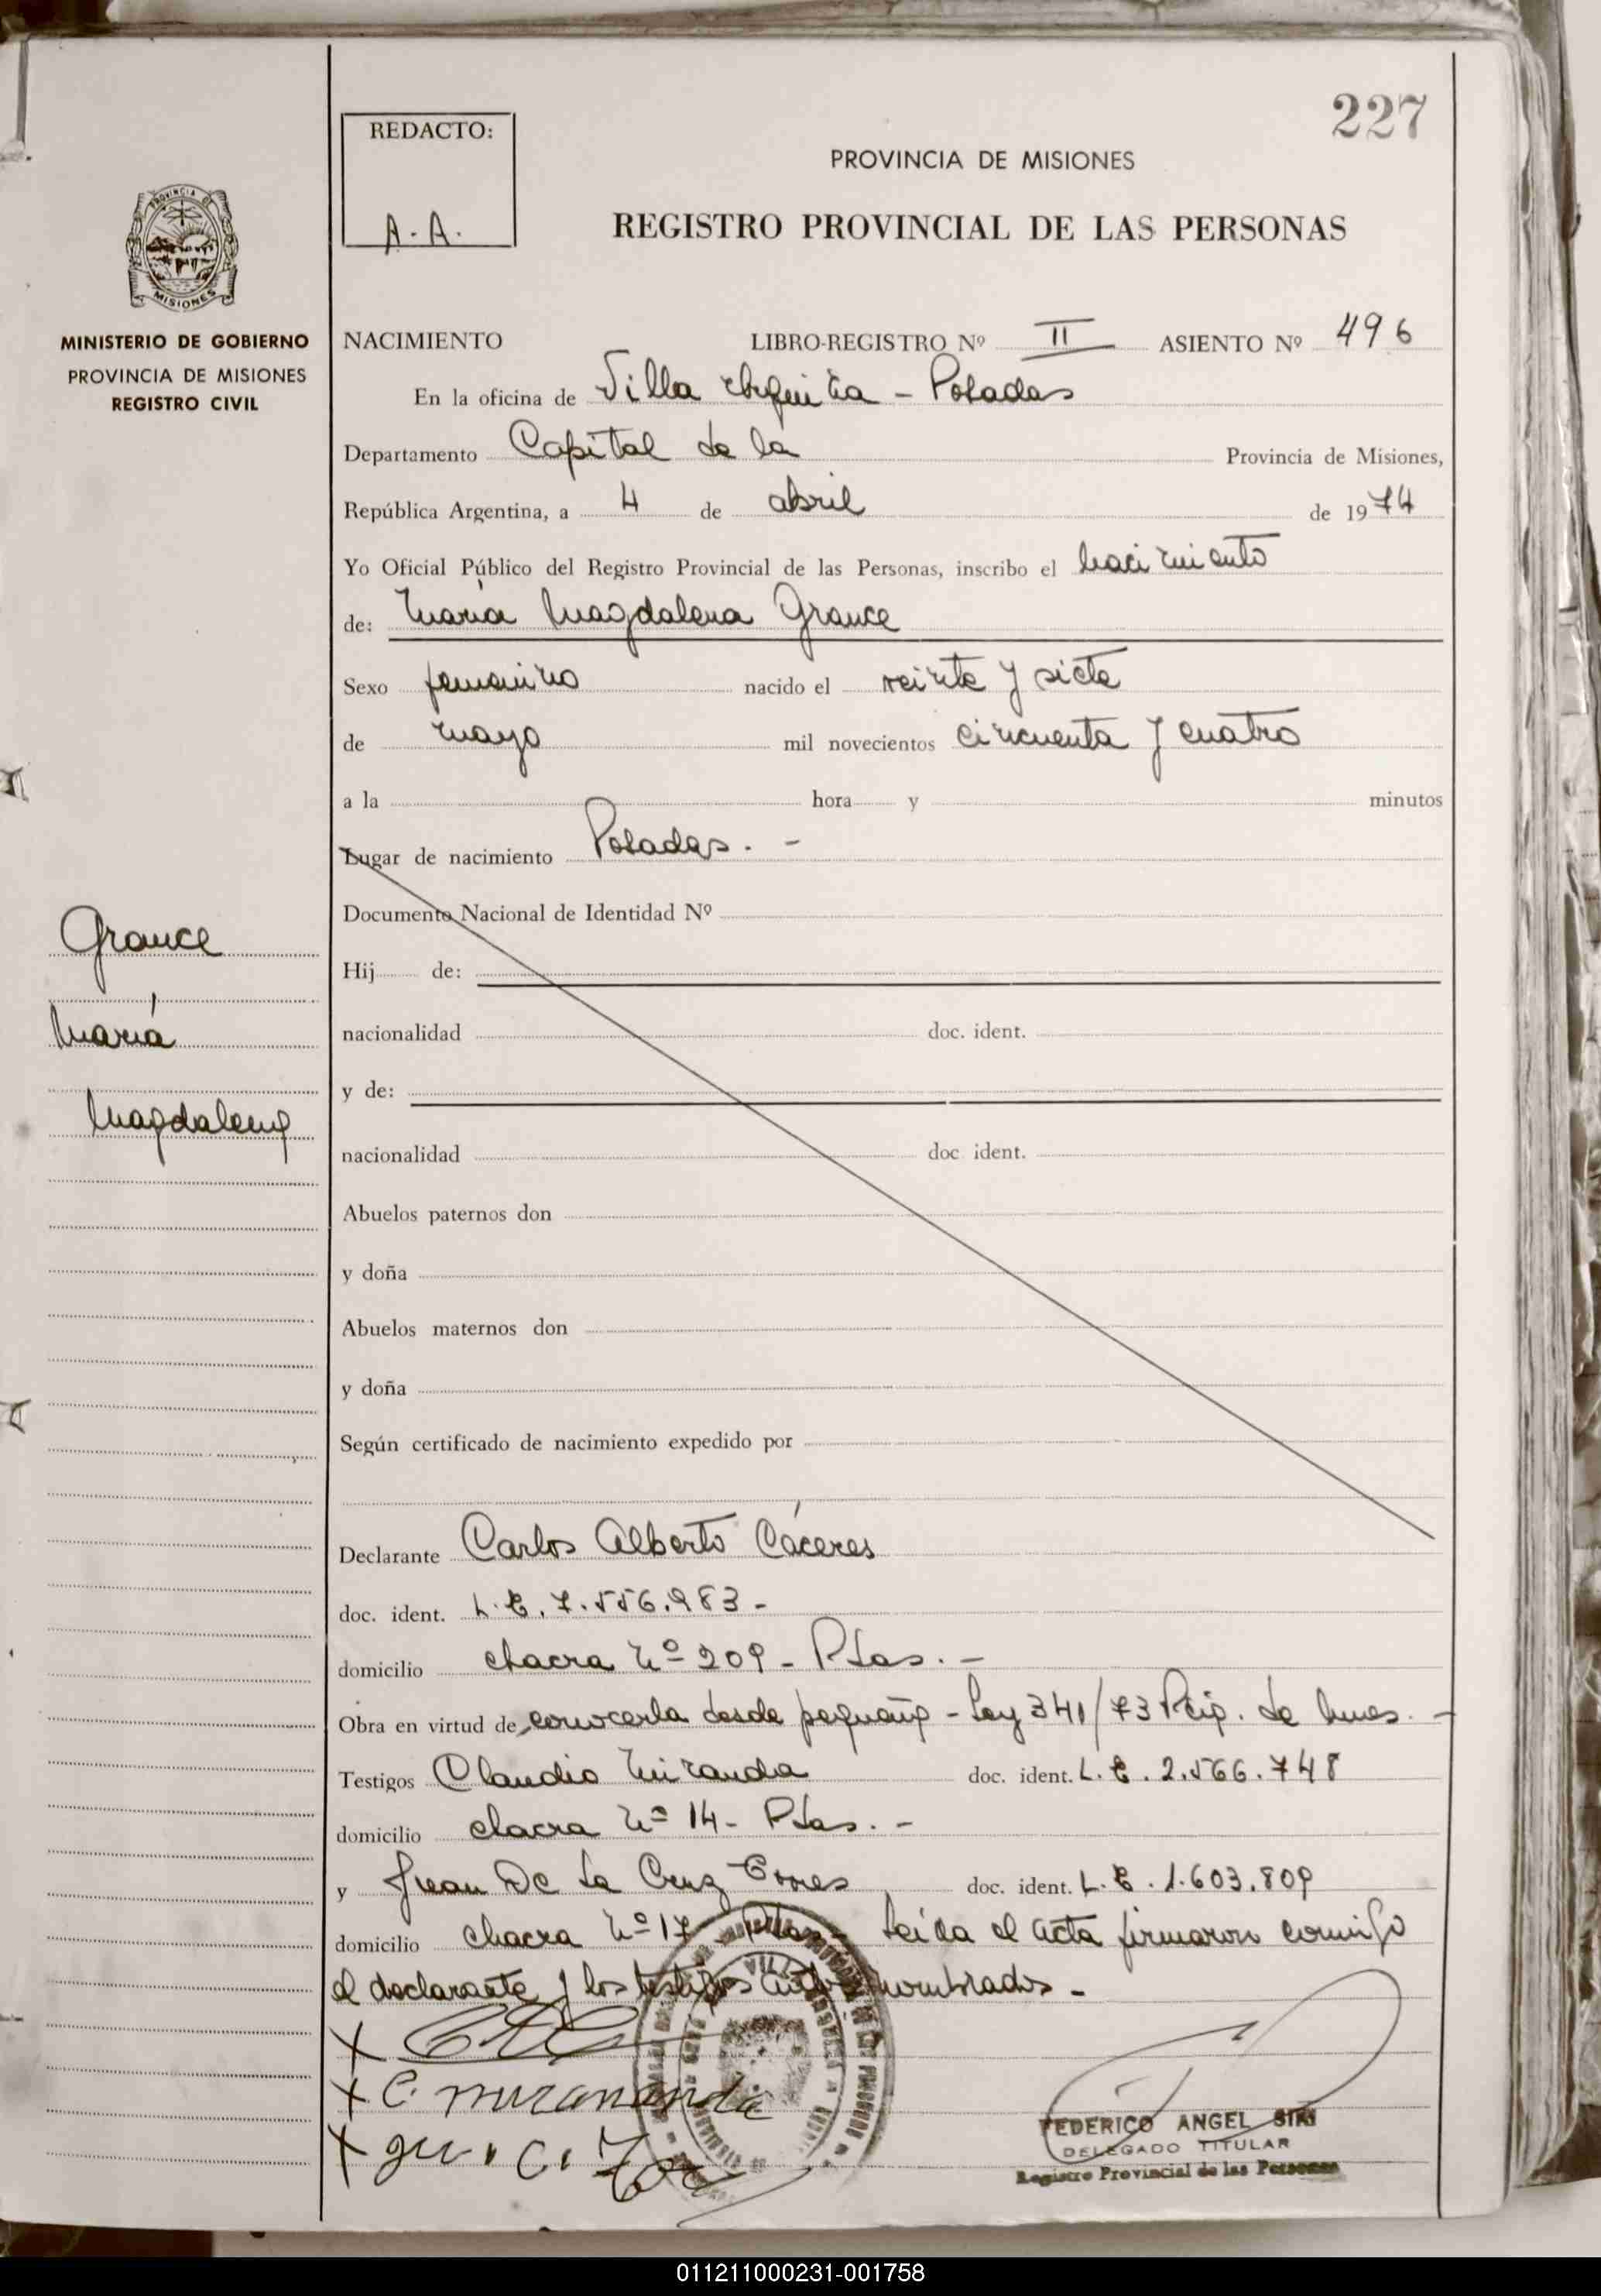 227
REDACTO:
A. A.
PROVINCIA DE MISIONES
REGISTRO PROVINCIAL DE LAS PERSONAS
PROVINCIA DE
MISIONES
MINISTERIO DE GOBIERNO
PROVINCIA DE MISIONES
REGISTRO CIVIL
NACIMIENTO LIBRO-REGISTRO Nº II ASIENTO Nº 496
En la oficina de Villa Urquiza - Posadas
Departamento Capital de la Provincia de Misiones,
República Argentina, a 4 de abril de 1974
Yo Oficial Público del Registro Provincial de las Personas, inscribo el nacimiento
de: María Magdalena Grance
Sexo femenino nacido el veinte y siete
de mayo mil novecientos cincuenta y cuatro
a la hora y minutos
Lugar de nacimiento Posadas. -
Documento Nacional de Identidad Nº
Hij de:
nacionalidad doc. ident.
y de:
nacionalidad doc ident.
Abuelos paternos don
y doña
Abuelos maternos don
y doña
Según certificado de nacimiento expedido por
Grance
María
Magdalena
Declarante Carlos Alberto Cáceres
doc. ident. L. E. 7.556.983 -
domicilio chacra Nº 209 - Pdas. -
Obra en virtud de conocerla desde pequeña - Ley 341/73 Pcia. de Mnes. -
Testigos Claudio Miranda doc. ident. L. E. 2.566.748
domicilio chacra Nº 14 - Pdas. -
y Juan De La Cruz Torres doc. ident. L. E. 1.603.809
domicilio chacra Nº 17 - Pdas - Leída el acta firmaron conmigo
el declarante y los testigos antes nombrados -
X
X C. Mirananda
X
FEDERICO ANGEL SIRI
DELEGADO TITULAR
Registro Provincial de las Personas
011211000231-001758